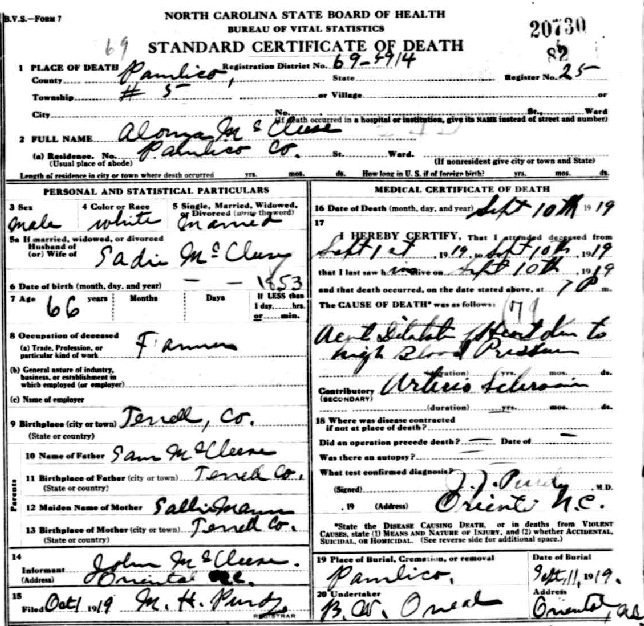 B.V.S.—FORM 7
NORTH CAROLINA STATE BOARD OF HEALTH
BUREAU OF VITAL STATISTICS
20730
69
STANDARD CERTIFICATE OF DEATH
82
1 PLACE OF DEATH Registration District No. 69-4914
County Pamlico, State Register No. 25
Township # 5 or Village
City No. St., Ward
(If death occurred in a hospital or institution, give its NAME instead of street and number)
2 FULL NAME Alonza McCleese
(a) Residence. No. Pamlico Co. St. Ward.
(Usual place of abode) (If nonresident give city or town and State)
Length of residence in city or town where death occurred yrs. mos. ds. How long in U. S. if of foreign birth? yrs. mos. ds.
PERSONAL AND STATISTICAL PARTICULARS
3 Sex 4 Color or Race 5 Single, Married, Widowed, or Divorced (write the word)
male white married
5a If married, widowed, or divorced
Husband of
(or) Wife of Sadie McCleese
6 Date of birth (month, day, and year) — — 1853
7 Age 66 years Months Days If LESS than 1 day, hrs. or min.
8 Occupation of deceased
(a) Trade, Profession, or particular kind of work Farmer
(b) General nature of industry, business, or establishment in which employed (or employer)
(c) Name of employer
9 Birthplace (city or town) Terrell, Co.
(State or country)
Parents
10 Name of Father Sam McCleese
11 Birthplace of Father (city or town) Terrell Co.
(State or country)
12 Maiden Name of Mother Sallie Mann
13 Birthplace of Mother (city or town) Terrell Co.
(State or country)
14
Informant John McCleese.
(Address) Oriental N.C.
15
Filed Oct 1 1919 M. H. Purdy
REGISTRAR
MEDICAL CERTIFICATE OF DEATH
16 Date of Death (month, day, and year) Sept 10th 1919
17
I HEREBY CERTIFY, That I attended deceased from
Sept 1st, 1919, to Sept 10th, 1919
that I last saw him alive on Sept 10th 1919
and that death occurred, on the date stated above, at 7 P m.
The CAUSE OF DEATH* was as follows: 79
Acute Dilatation of Heart due to
high Blood Pressure
(duration) yrs. mos. ds.
Contributory Arterio Sclerosis
(SECONDARY)
(duration) yrs. mos. ds.
18 Where was disease contracted
if not at place of death?
Did an operation precede death? — Date of —
Was there an autopsy? —
What test confirmed diagnosis?
(Signed) J. J. Purdy M.D.
, 19 (Address) Oriental N.C.
*State the DISEASE CAUSING DEATH, or in deaths from VIOLENT
CAUSES, state (1) MEANS AND NATURE OF INJURY, and (2) whether ACCIDENTAL,
SUICIDAL, OR HOMICIDAL. (See reverse side for additional space.)
19 Place of Burial, Cremation, or removal Date of Burial
Pamlico. Sept, 11, 1919.
20 Undertaker Address
B. W. Oneal Oriental, NC